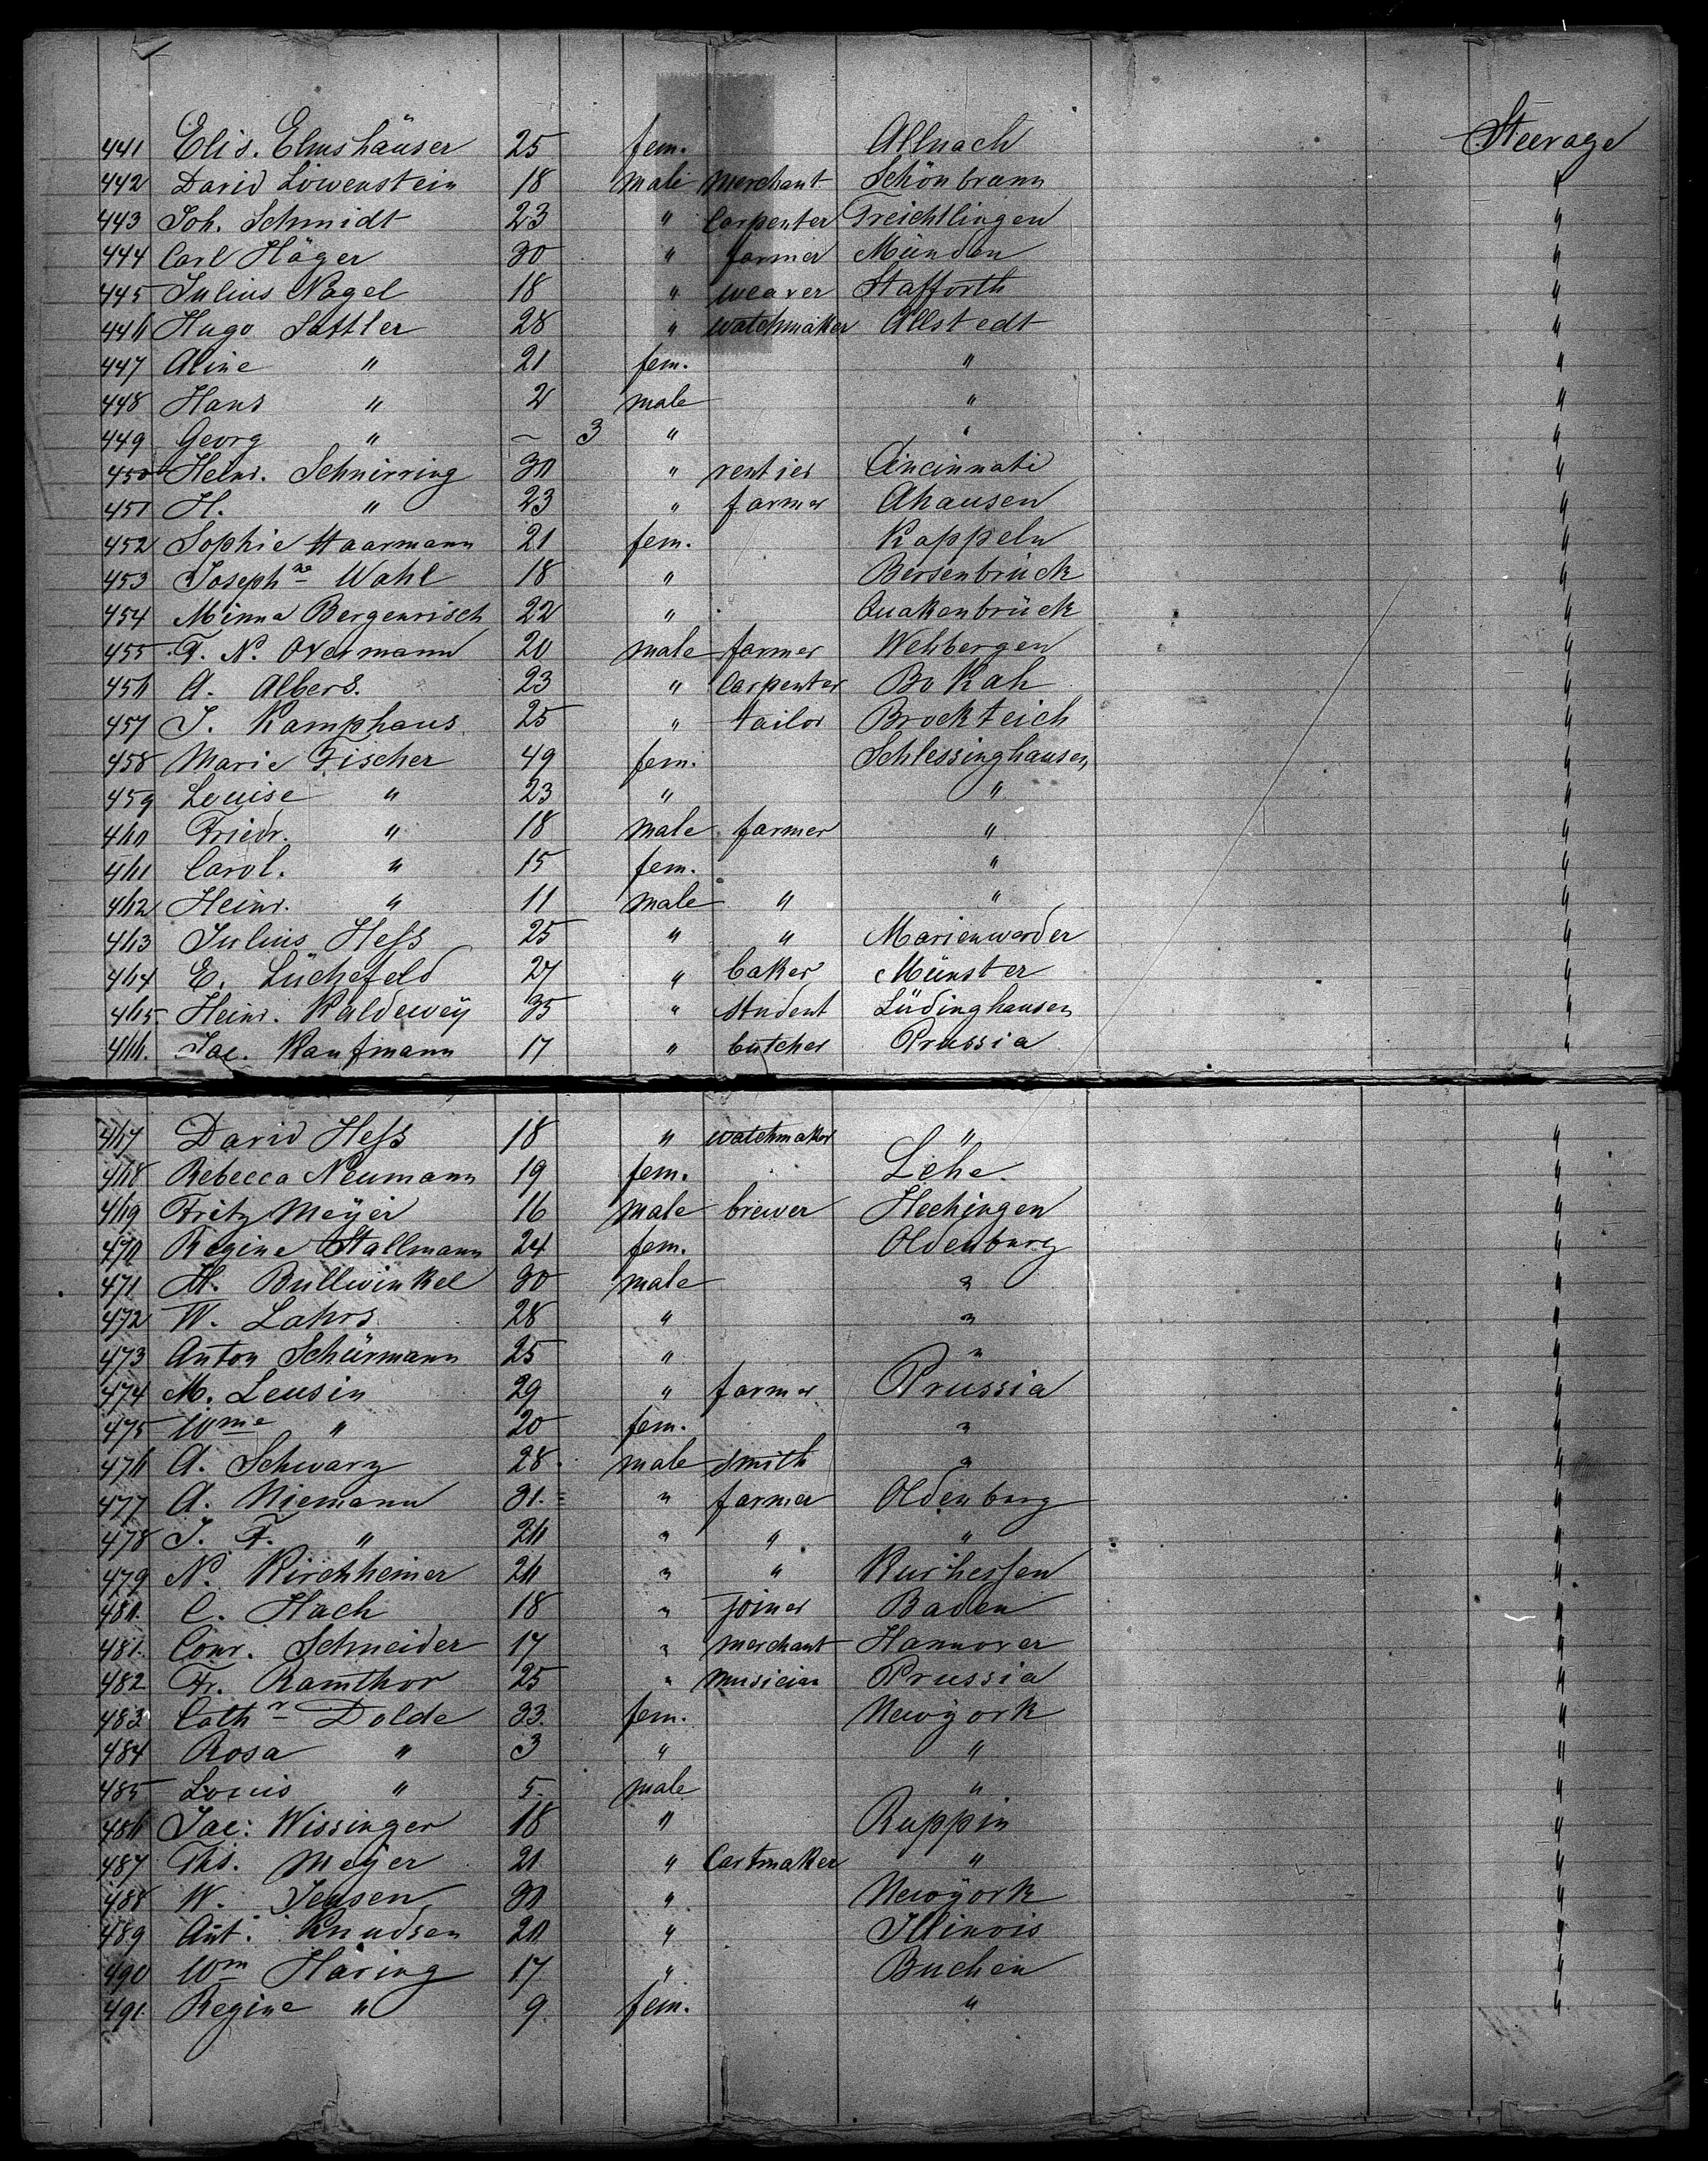 441 Elis. Elmshäuser 25 fem. Allnach Steerage
442 David Löwenstein 18 male merchant Schönbrunn "
443 Joh. Schmidt 23 " Carpenter Treichtlingen "
444 Carl Häger 30 " farmer Münden "
445 Julius Nagel 18 " weaver Stafforth "
446 Hugo Sattler 28 " watchmaker Allstedt "
447 Aline " 21 fem. " "
448 Hans " 2 male " "
449 Georg " – 3 " " "
450 Heinr. Schnirring 30 " rentier Cincinnati "
451 H. " 23 " farmer Ahausen "
452 Sophie Haarmann 21 fem. Kappeln "
453 Josephne Wahl 18 " Bersenbrück "
454 Minna Bergenrisch 22 " Quakenbrück "
455 F. N. Overmann 20 male farmer Wehbergen "
456 A. Albers. 23 " Carpenter Bokah "
457 J. Kamphaus 25 " tailor Brockteich "
458 Marie Fischer 49 fem. Schlessinghausen "
459 Louise " 23 " " "
460 Friedr. " 18 male farmer " "
461 Carol. " 15 fem. " "
462 Heinr. " 11 male " " "
463 Julius Heß 25 " " Marienwerder "
464 E. Lüchefeld 27 " baker Münster "
465. Heinr. Kaldewey 35 " student Lüdinghausen "
466. Jac. Kaufmann 17 " butcher Prussia "
467 David Heß 18 " watchmaker " "
468 Rebecca Neumann 19 fem. Lehe. "
469 Fritz Meÿer 16 male brewer Hechingen "
470 Regine Stallmann 24 fem. Oldenburg "
471 H. Bullwinkel 30 male " "
472 W. Lahrs 28 " " "
473 Anton Schürmann 25 " " "
474 M. Leusin 29 " farmer Prussia "
475 Wme " 20 fem. " "
476 A. Schwarz 28 male smith " "
477 A. Niemann 31. " farmer Oldenburg "
478 J. F. " 26 " " " "
479 N. Kirchheimer 26 " " Kurhessen "
480. C. Hach 18 " joiner Baden "
481. Conr. Schneider 17 " merchant Hannover "
482 Fr. Ramthor 25 " musician Prussia "
483 Cathr Dolde 33. fem. Newÿork "
484 Rosa " 3 " " "
485 Louis " 5. male " "
486 Jac: Wissinger 18 " Ruppin "
487 Ths. Meÿer 21 " Cartmaker " "
488 W. Jensen 30 " Newÿork "
489 Ant. Knudsen 20 " Illinois "
490 Wm Häring 17 " Buchen "
491. Regine " 9. fem. " "